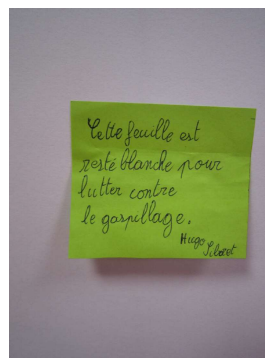 Cette feuille est
resté blanche pour
lutter contre
le gaspillage.
Hugo